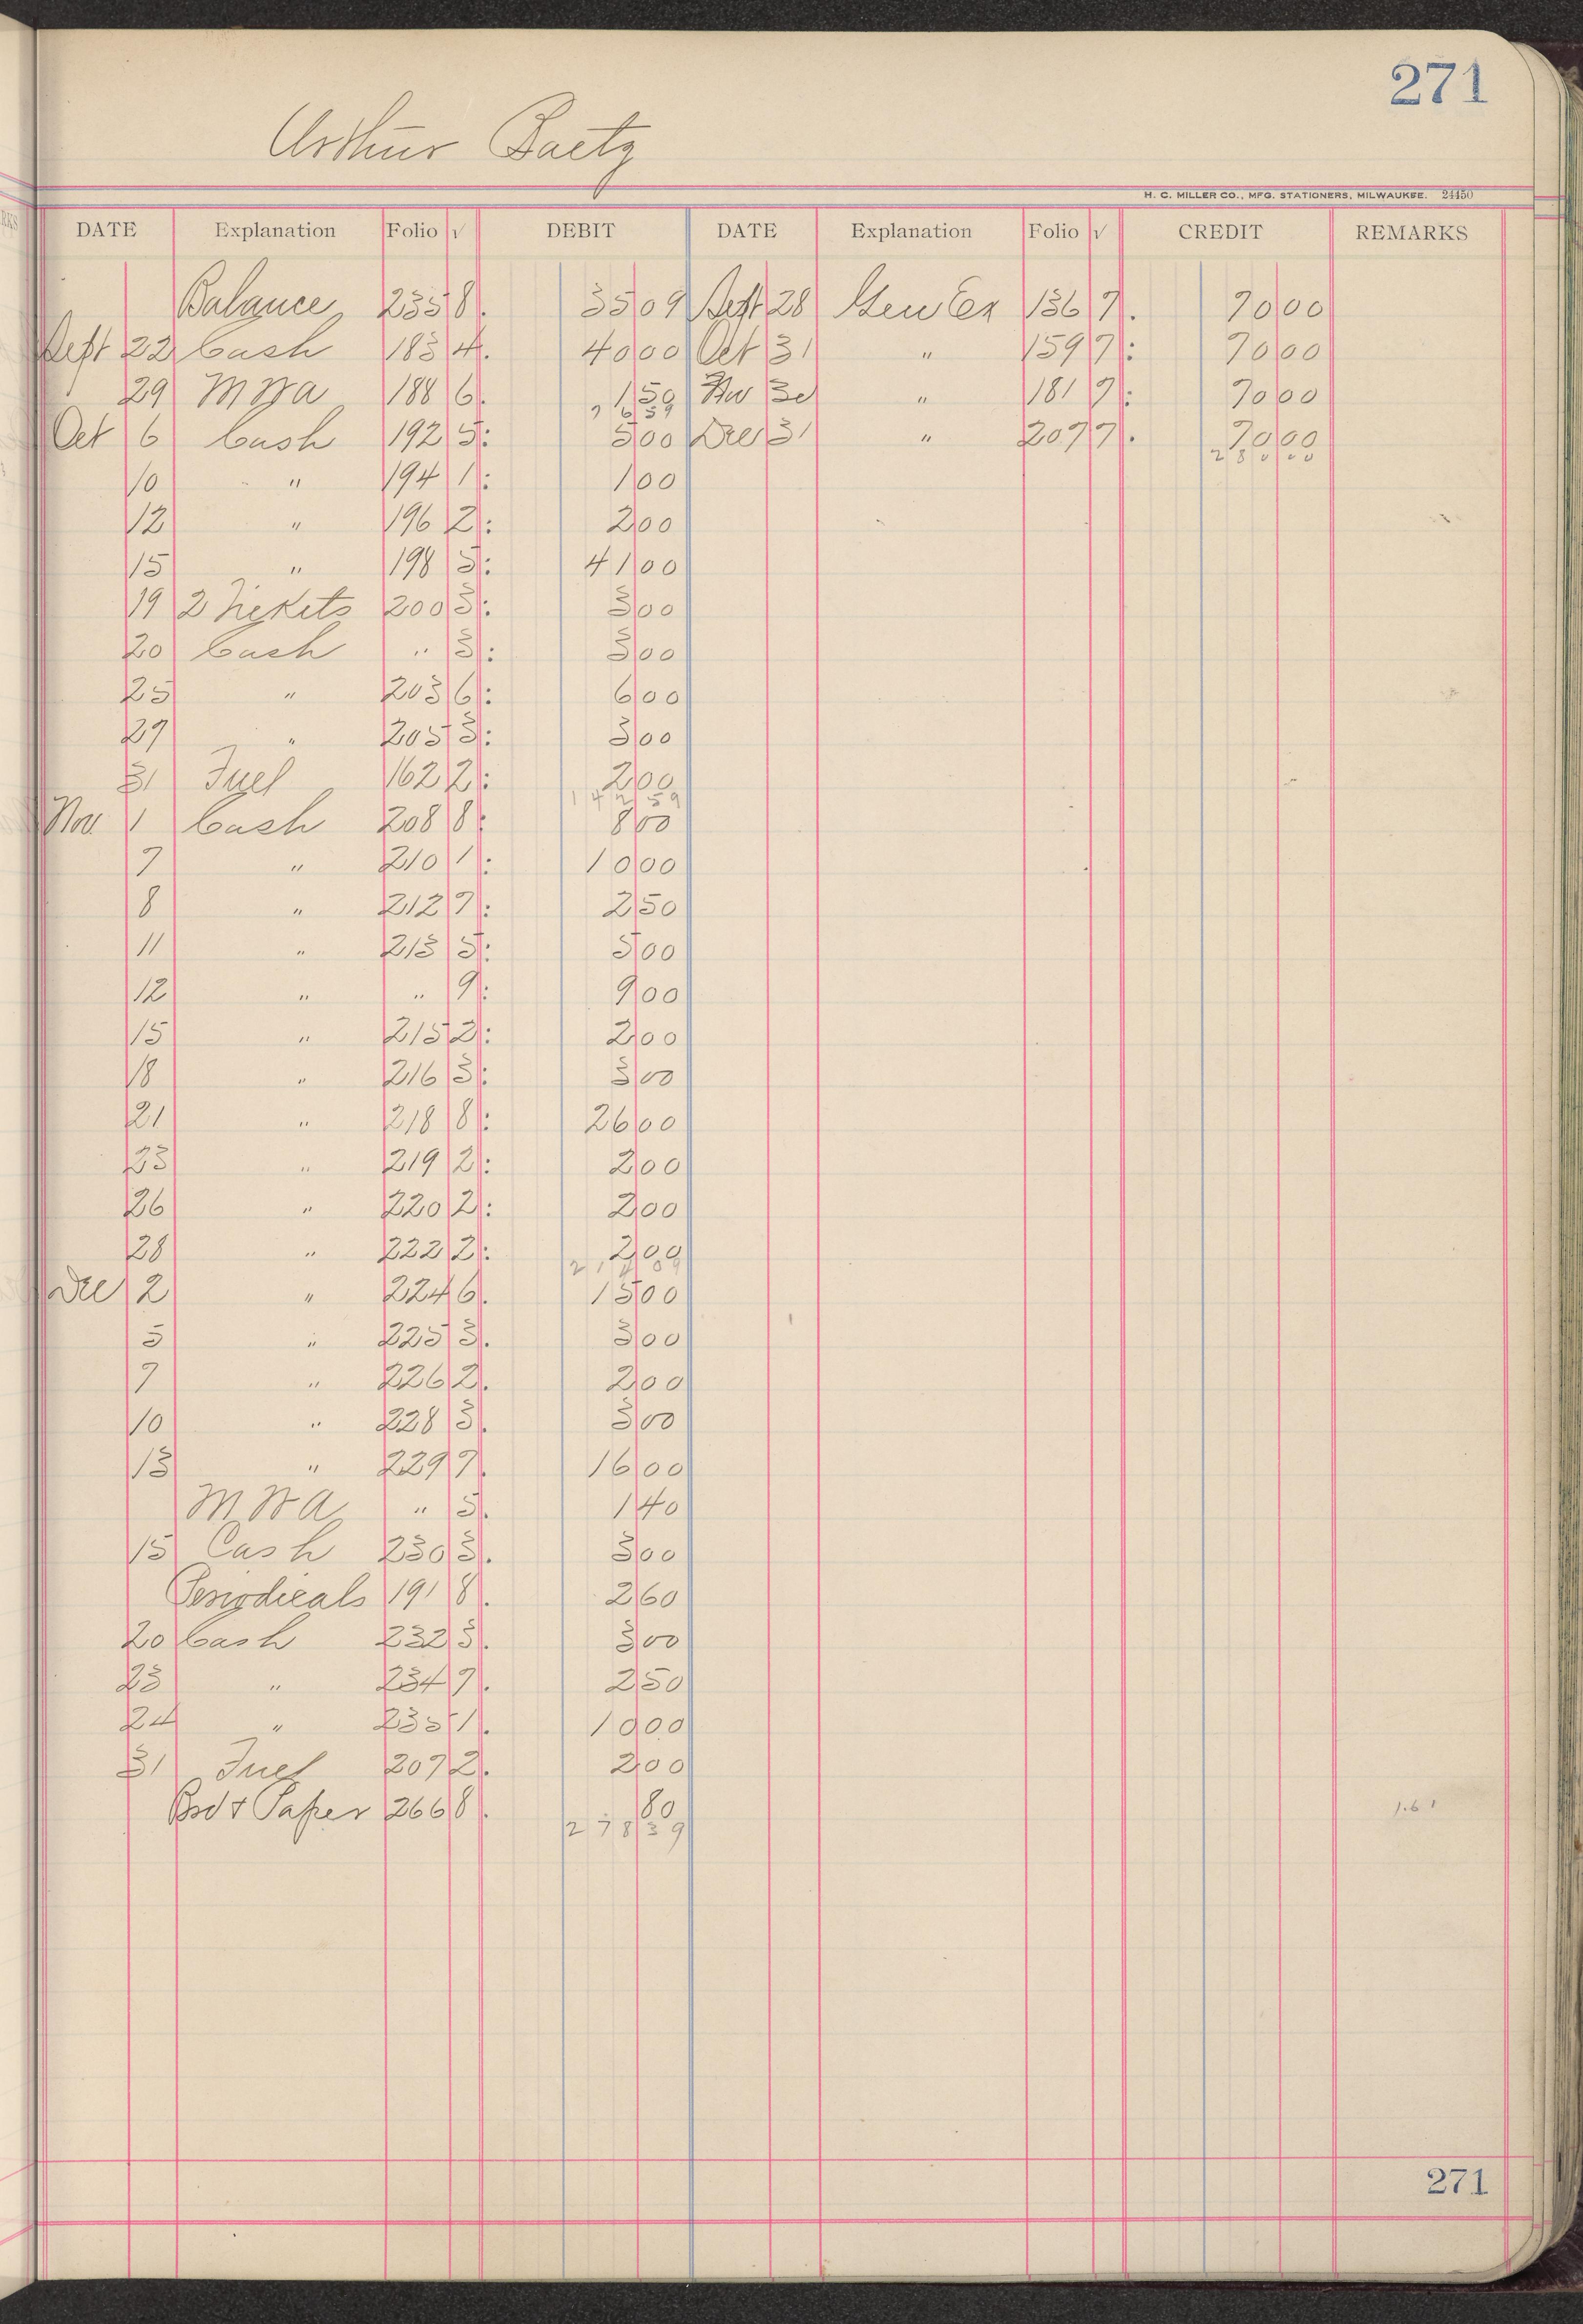 271
Arthur Baetz
H. C. MILLER CO., MFG. STATIONERS, MILWAUKEE. 24450
DATE Explanation Folio √ DEBIT DATE Explanation Folio √ CREDIT REMARKS
Balance 235 8. 35 09 Sept 28 Gen Ex 136 7. 70 00
Sept 22 Cash 183 4. 40 00 Oct 31 " 159 7: 70 00
29 MWA 188 6. 1 50 Nov 30 " 181 7: 70 00
76 59
Oct 6 Cash 192 5: 5 00 Dec 31 " 207 7. 70 00
280 00
10 " 194 1: 1 00
12 " 196 2: 2 00
15 " 198 5: 41 00
19 2 Tickets 200 3: 3 00
20 Cash " 3: 3 00
25 " 203 6: 6 00
27 " 205 3: 3 00
31 Fuel 162 2: 2 00
142 59
Nov. 1 Cash 208 8: 8 00
7 " 210 1: 10 00
8 " 212 7: 2 50
11 " 213 5: 5 00
12 " " 9: 9 00
15 " 215 2: 2 00
18 " 216 3: 3 00
21 " 218 8: 26 00
23 " 219 2: 2 00
26 " 220 2: 2 00
28 " 222 2: 2 00
214 09
Dec 2 " 224 6. 15 00
5 " 225 3. 3 00
7 " 226 2. 2 00
10 " 228 3. 3 00
13 " 229 7. 16 00
MWA " 5. 1 40
15 Cash 230 3. 3 00
Periodicals 191 8. 2 60
20 Cash 232 3. 3 00
23 " 234 7. 2 50
24 " 235 1. 10 00
31 Fuel 207 2. 2 00
Brd & Paper 266 8. 80
1.61
278 39
271